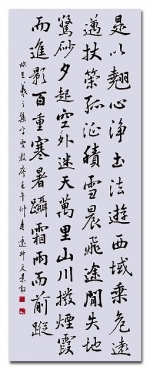 是以翹心淨土法遊西域乘危遠
邁杖策孤征積雪晨飛途閒失地
驚砂夕起空外迷天萬里山川撥煙霞
而進影百重寒暑躡霜雨而前蹤